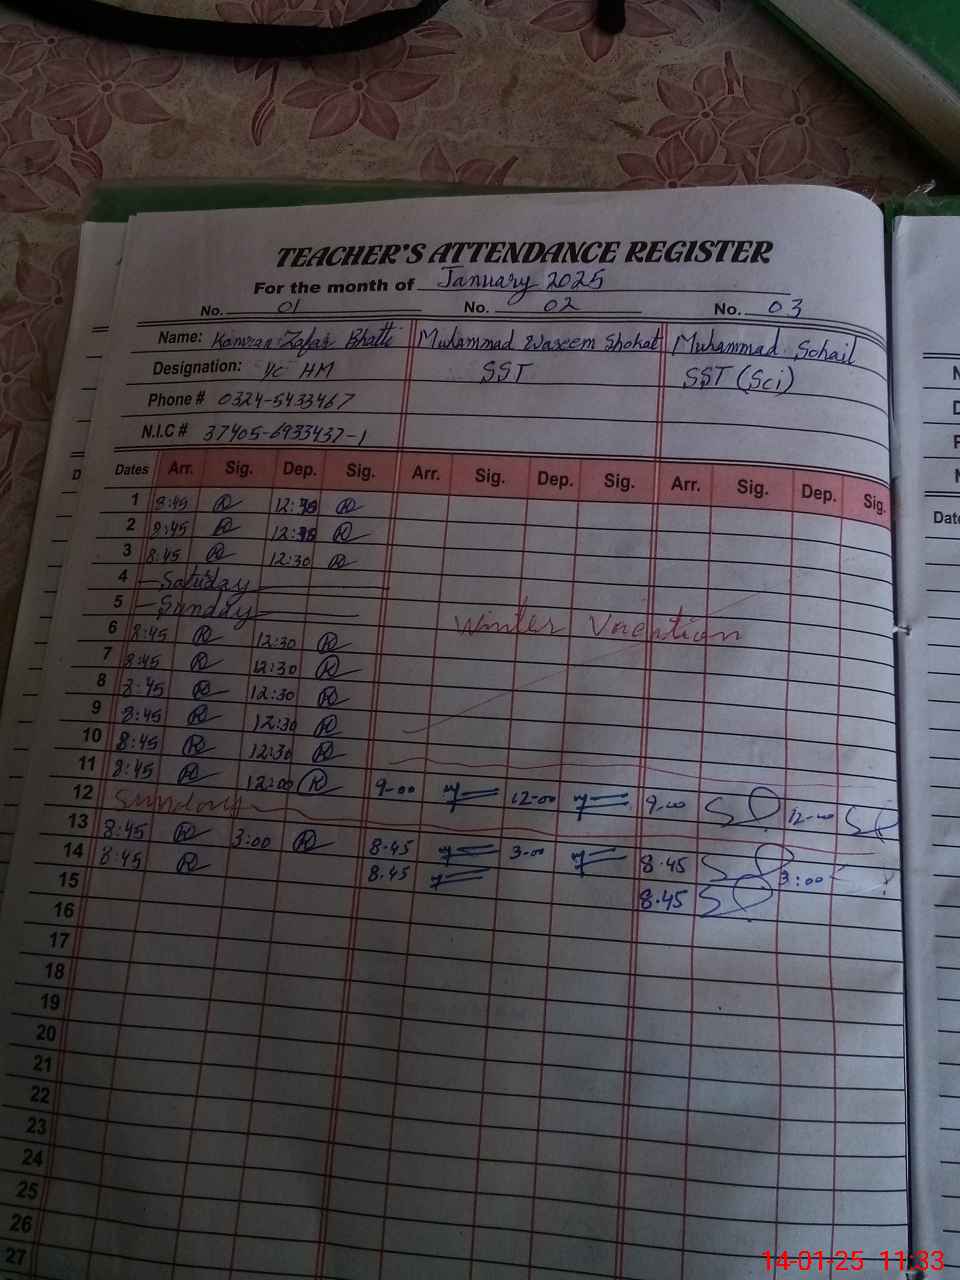 TEACHER'S ATTENDANCE REGISTER
For the month of January 2025
No. 01 No. 02 No. 03
Name: Kamran Zafar Bhatti Muhammad Waseem Shokat Muhammad Sohail
Designation: I/C HM SST SST (Sci)
Phone # 0324-5433467
N.I.C # 37405-6933437-1
Dates Arr. Sig. Dep. Sig. Arr. Sig. Dep. Sig. Arr. Sig. Dep. Sig.
1 8:45 12:30
2 8:45 12:30
3 8:45 12:30
4 Saturday
5 Sunday
Winter Vacation
6 8:45 12:30
7 8:45 12:30
8 8:45 12:30
9 8:45 12:30
10 8:45 12:30
11 8:45 12:00 9-00 12-00 9-00 12-00
12 Sunday
13 8:45 3:00 8.45 3-00 8.45 3:00
14 8:45 8.45 8.45
15
16
17
18
19
20
21
22
23
24
25
26
27
Date
14-01-25 11:33